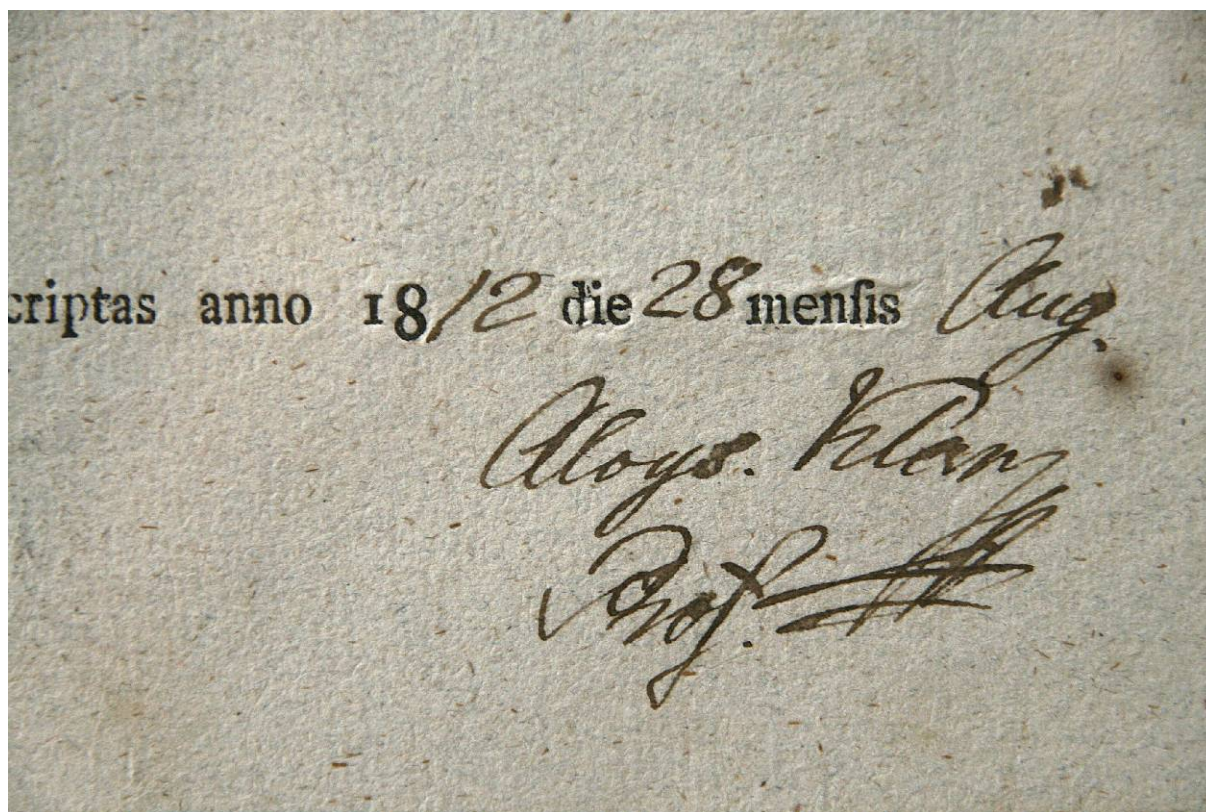 criptas anno 1812 die 28 menſis Aug.
Aloys. Klar
Prof.